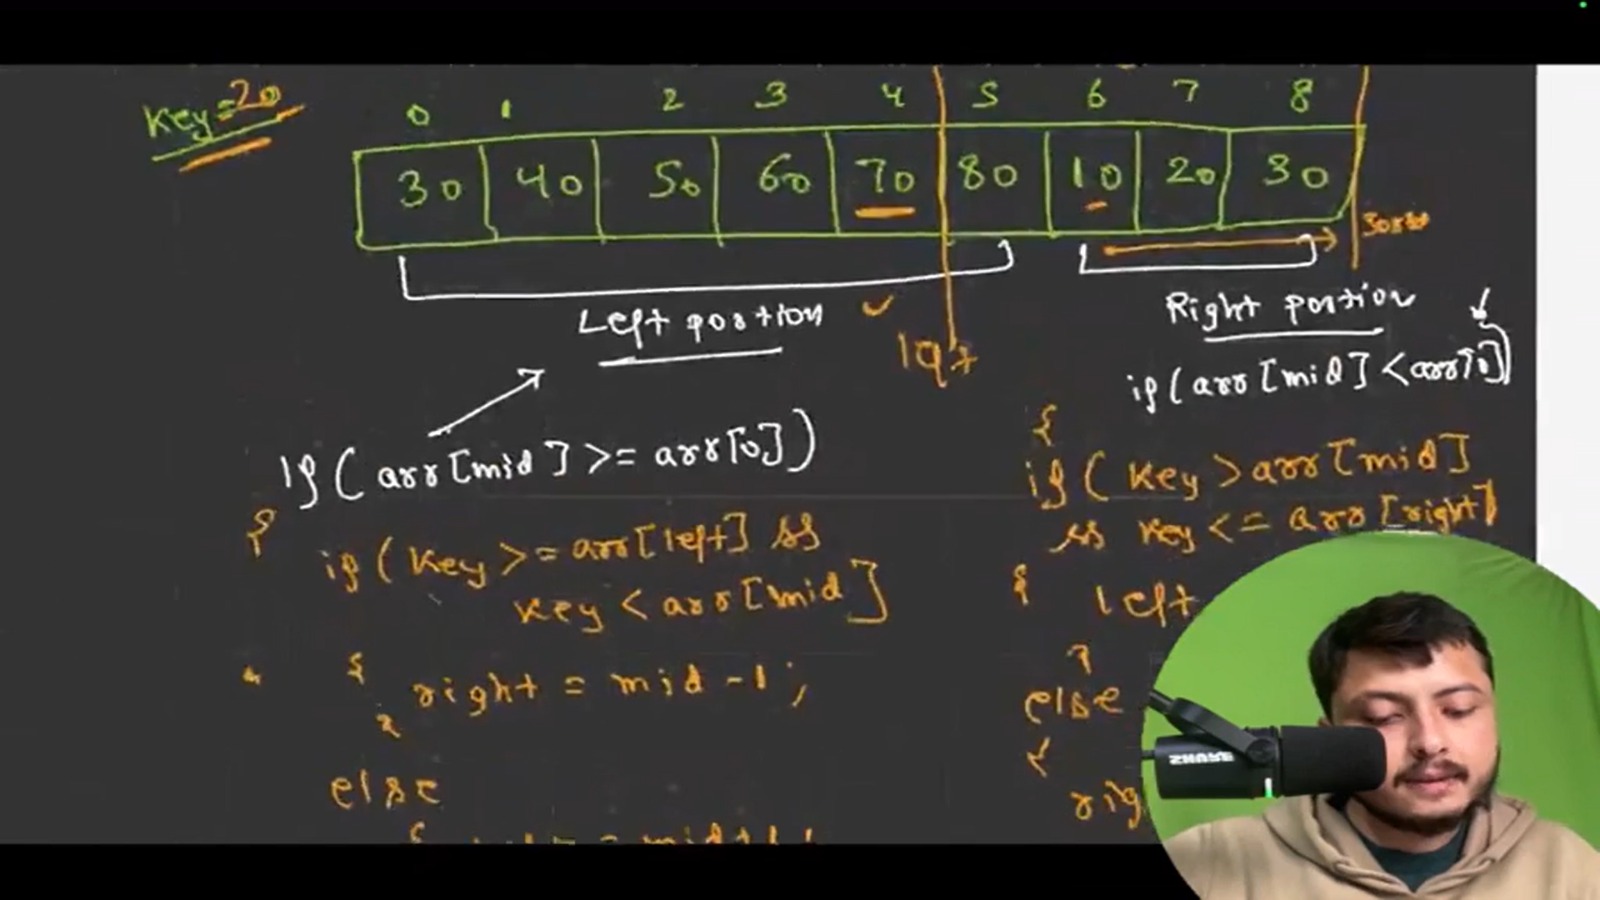 Key=20
0 1 2 3 4 5 6 7 8
30 40 50 60 70 80 10 20 30
Left portion
Right portion
if(arr[mid] >= arr[0])
if(arr[mid] < arr[0])
{
if(key >= arr[left] &&
key < arr[mid]
{ right = mid - 1;
}
else
{
{
if(key > arr[mid]
&& key <= arr[right]
{ left
}
else
{
rig